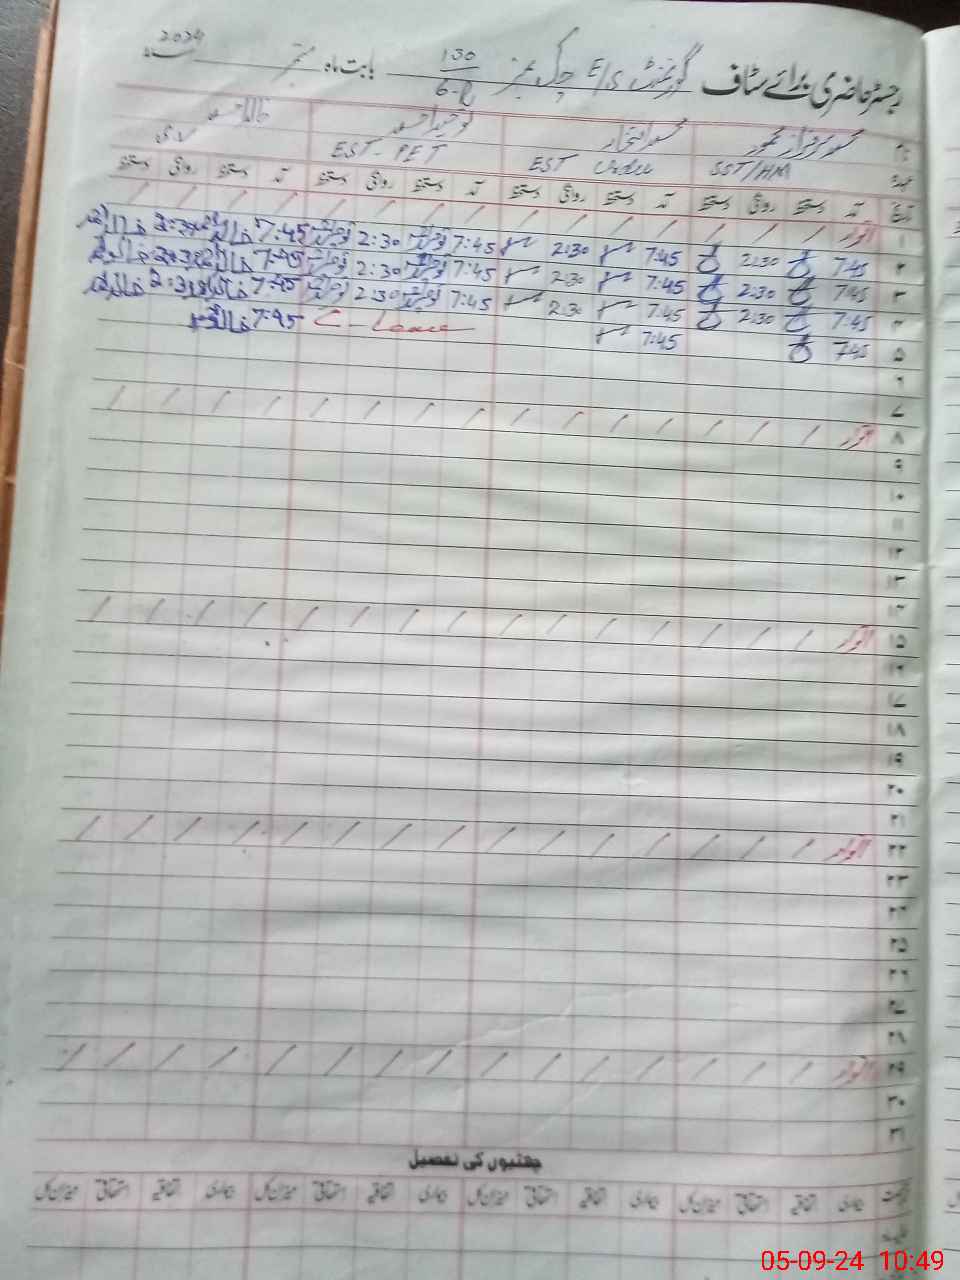 رجسٹر حاضری برائے سٹاف گورنمنٹ E/S چک نمبر 130/6-R بابت ماہ ستمبر سنہ 2024
نام محمد سرفراز محمود محمد افتخار توحید احمد خالد احمد
عہدہ SST/HM EST Urdu EST-PET
تاریخ آمد دستخط روانگی دستخط آمد دستخط روانگی دستخط آمد دستخط روانگی دستخط آمد دستخط روانگی دستخط
۱ اتوار / / / / / / / / / / / / / / /
۲ 7:45 2:30 7:45 2:30 7:45 2:30 7:45 خالد 2:30 خالد
۳ 7:45 2:30 7:45 2:30 7:45 2:30 7:45 خالد 2:30 خالد
۴ 7:45 2:30 7:45 2:30 7:45 2:30 7:45 خالد 2:30 خالد
۵ 7:45 7:45 C-Leave 7:45 خالد
۶
۷
۸ اتوار / / / / / / / / / / / / / / /
۹
۱۰
۱۱
۱۲
۱۳
۱۴
۱۵ اتوار / / / / / / / / / / / / / / /
۱۶
۱۷
۱۸
۱۹
۲۰
۲۱
۲۲ اتوار / / / / / / / / / / / / / / /
۲۳
۲۴
۲۵
۲۶
۲۷
۲۸
۲۹ اتوار / / / / / / / / / / / / / / /
۳۰
۳۱
چھٹیوں کی تفصیل
بیماری اتفاقیہ استحقاقی میزان کل بیماری اتفاقیہ استحقاقی میزان کل بیماری اتفاقیہ استحقاقی میزان کل بیماری اتفاقیہ استحقاقی میزان کل
05-09-24 10:49